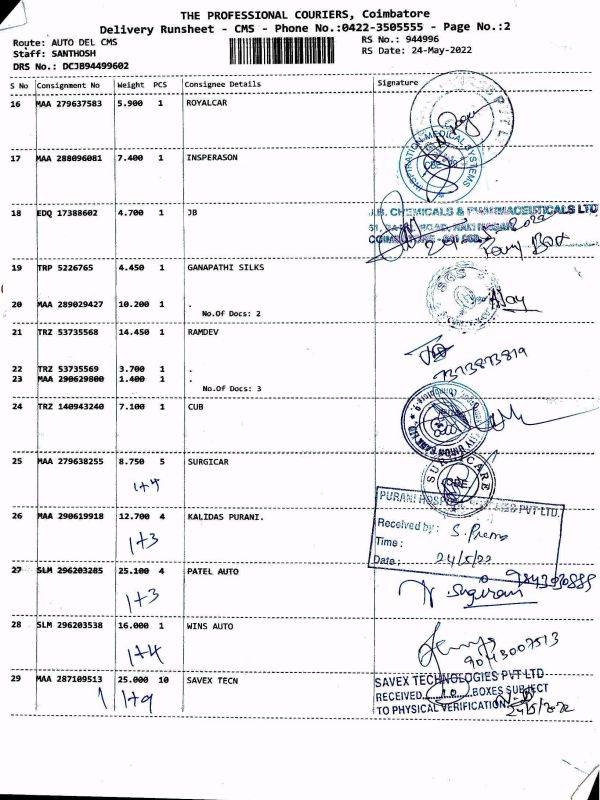 THE PROFESSIONAL COURIERS, Coimbatore
Delivery Runsheet - CMS - Phone No.:0422-3505555 - Page No.:2
Route: AUTO DEL CMS
RS No.: 944996
Staff: SANTHOSH
RS Date: 24-May-2022
DRS No.: DCJB94499602
S No Consignment No Weight PCS Consignee Details Signature
16 MAA 279637583 5.900 1 ROYALCAR
17 MAA 288096081 7.400 1 INSPERASON
INSPIRATION MEDICAL SYSTEMS
CBE
18 EDQ 17388602 4.700 1 JB
J.B. CHEMICALS & PHARMACEUTICALS LTD
19 TRP 5226765 4.450 1 GANAPATHI SILKS
20 MAA 289029427 10.200 1 .
No.Of Docs: 2
21 TRZ 53735568 14.450 1 RAMDEV
22 TRZ 53735569 3.700 1 .
23 MAA 290629800 1.400 1 .
No.Of Docs: 3
24 TRZ 140943240 7.100 1 CUB
25 MAA 279638255 8.750 5 SURGICAR
SURGICARE
CBE
1+4
26 MAA 290619918 12.700 4 KALIDAS PURANI.
1+3
PVT LTD.
Received by: S. Prema
Time:
Date: 24/5/22
27 SLM 296203285 25.100 4 PATEL AUTO
1+3
28 SLM 296203538 16.000 1 WINS AUTO
1+4
29 MAA 287109513 25.000 10 SAVEX TECN
1+9
SAVEX TECHNOLOGIES PVT LTD
RECEIVED 10 BOXES SUBJECT
TO PHYSICAL VERIFICATION
24/5/2022